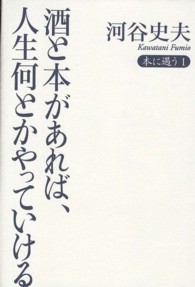 酒と本があれば、
人生何とかやっていける
河谷史夫
Kawatani Fumio
本に遇う I